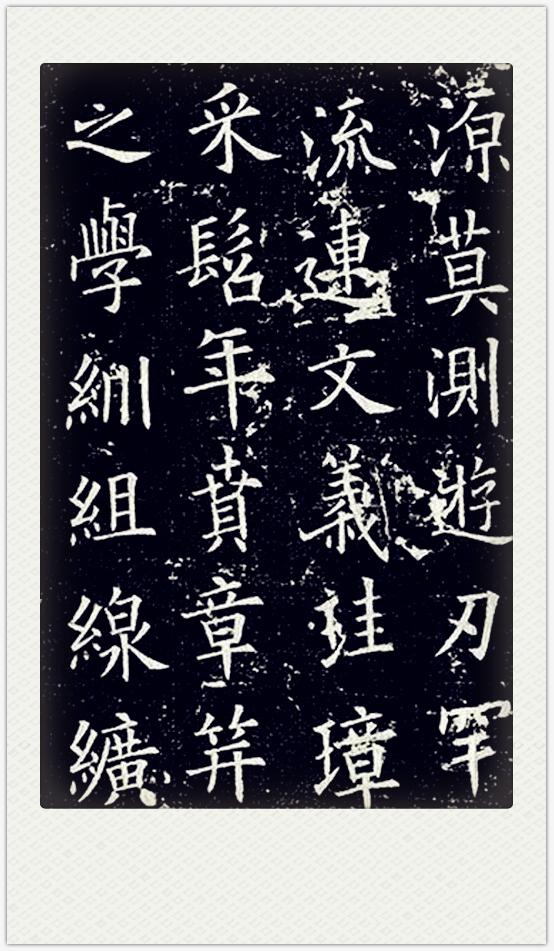 源莫測遊刃罕
流連文義珪璋
采髫年賁章笄
之學紃組線纊